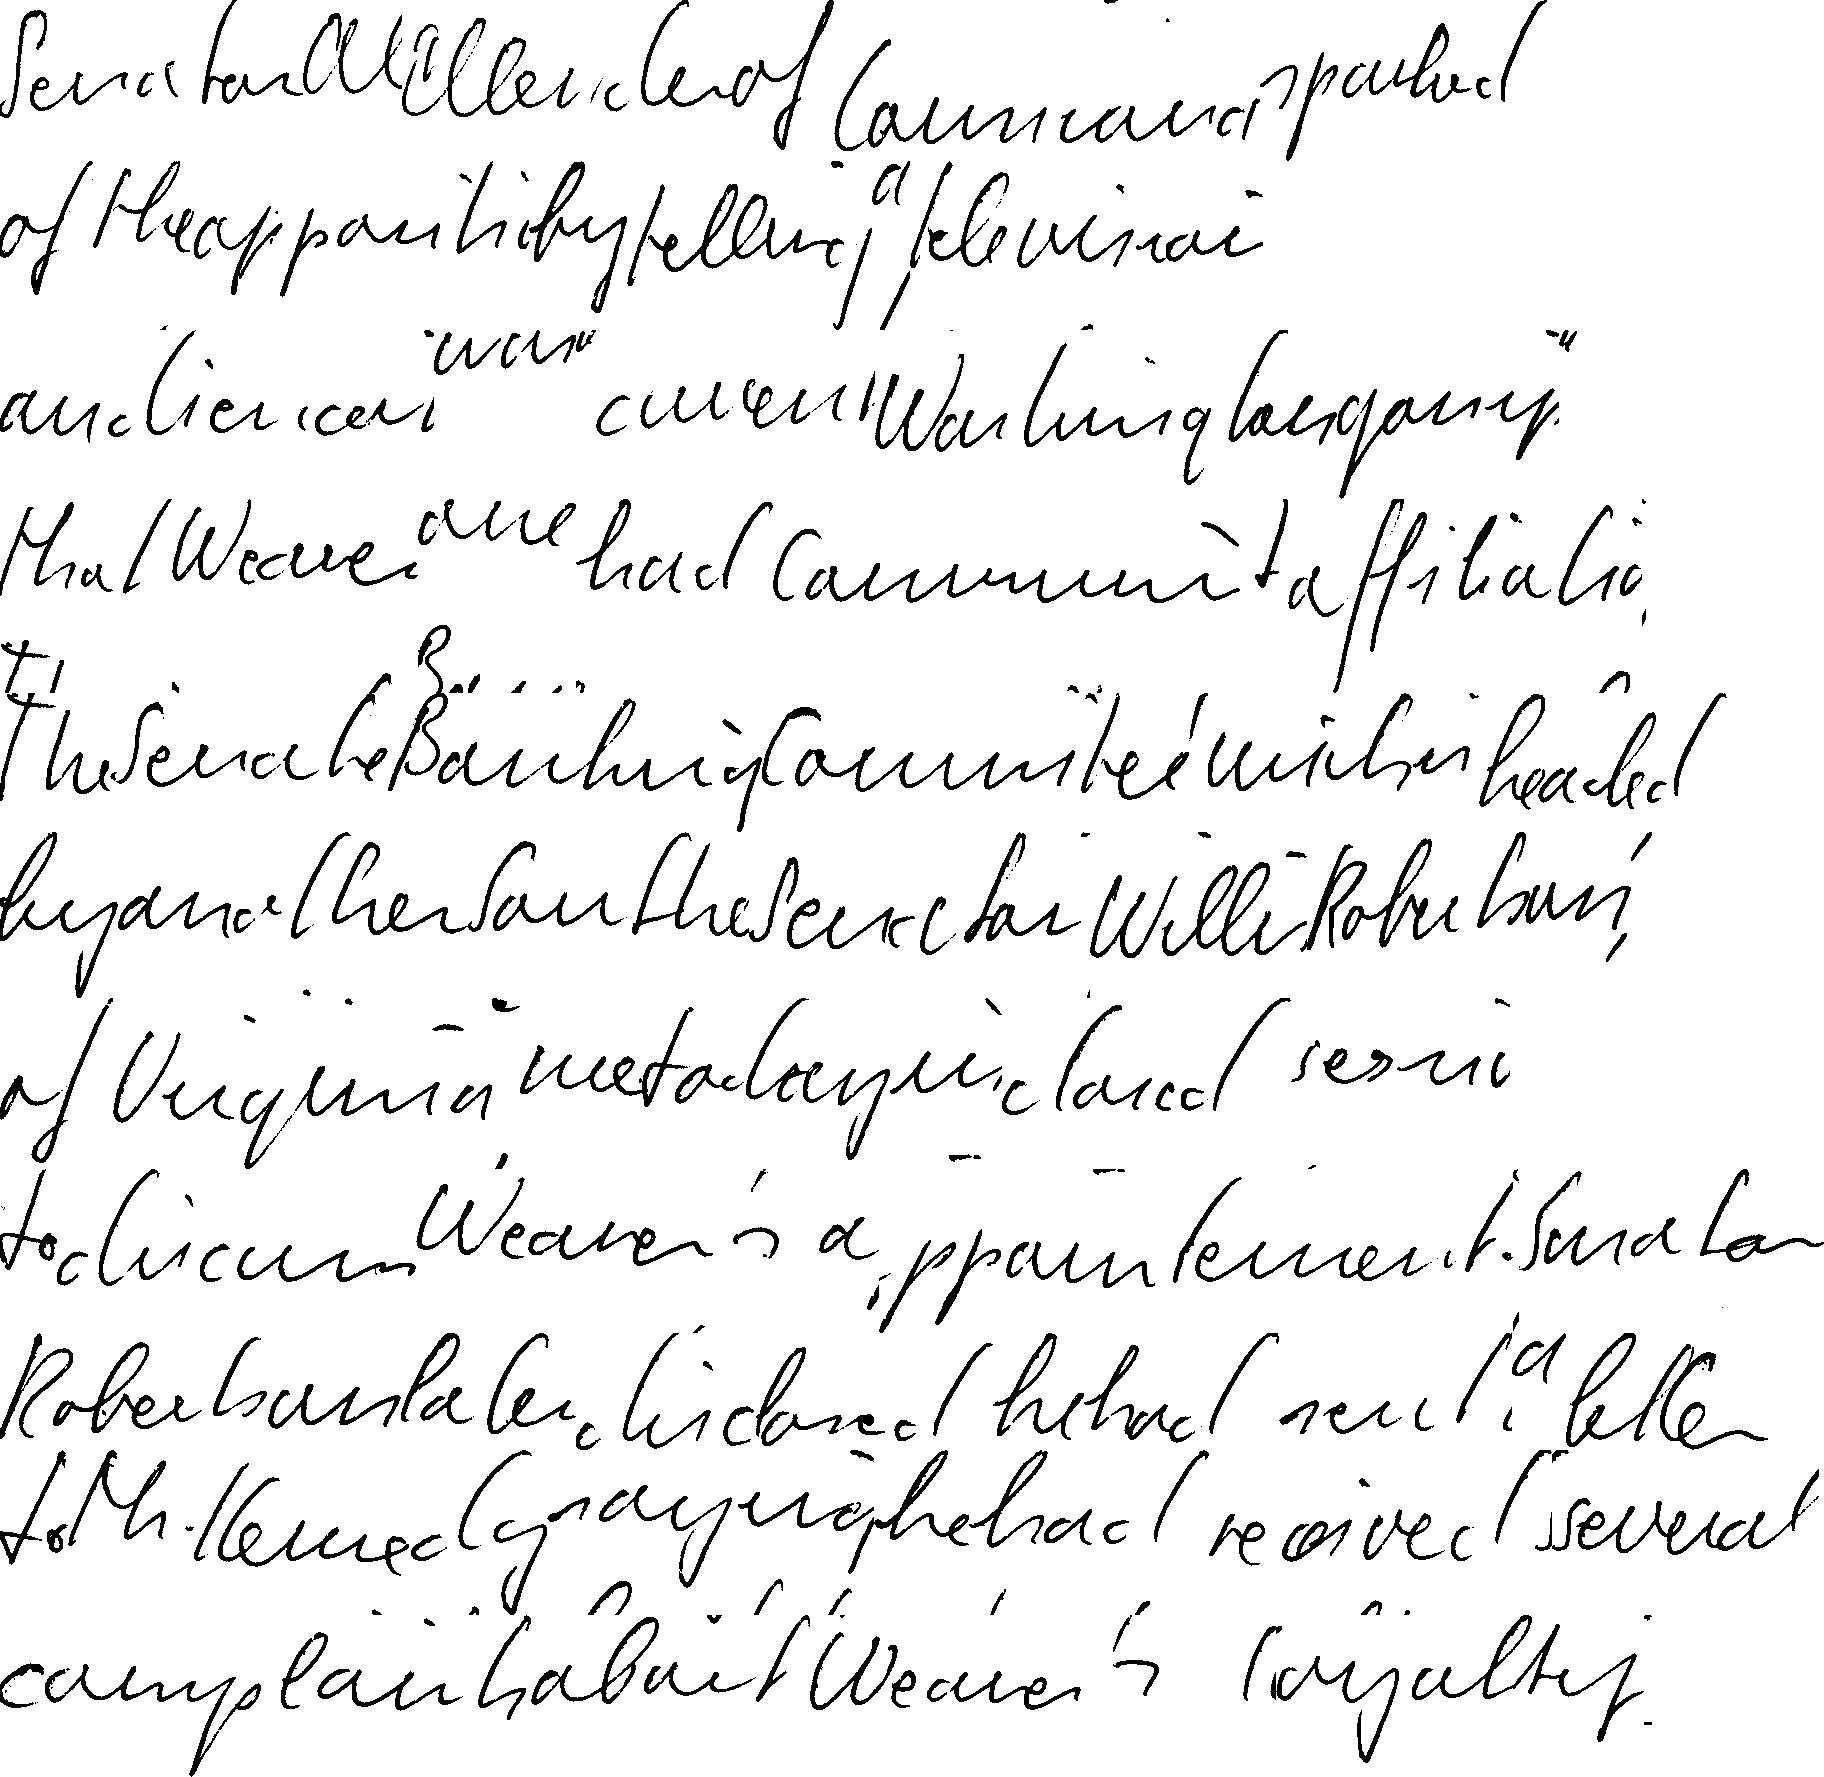 Senator Allen Ellender of Louisiana sparked
of the opposition by telling a television
audience it was "current Washington gossip"
that Weaver once had Communist affiliations.
The Senate Banking Committee, which is headed
by another Southern Senator Willis Robertson,
of Virginia met today in closed session
to discuss Weaver's appointement. Senator
Robertson later disclosed he had sent a letter
to Mr. Kennedy saying he had received several
complaints about Weaver's loyalty.